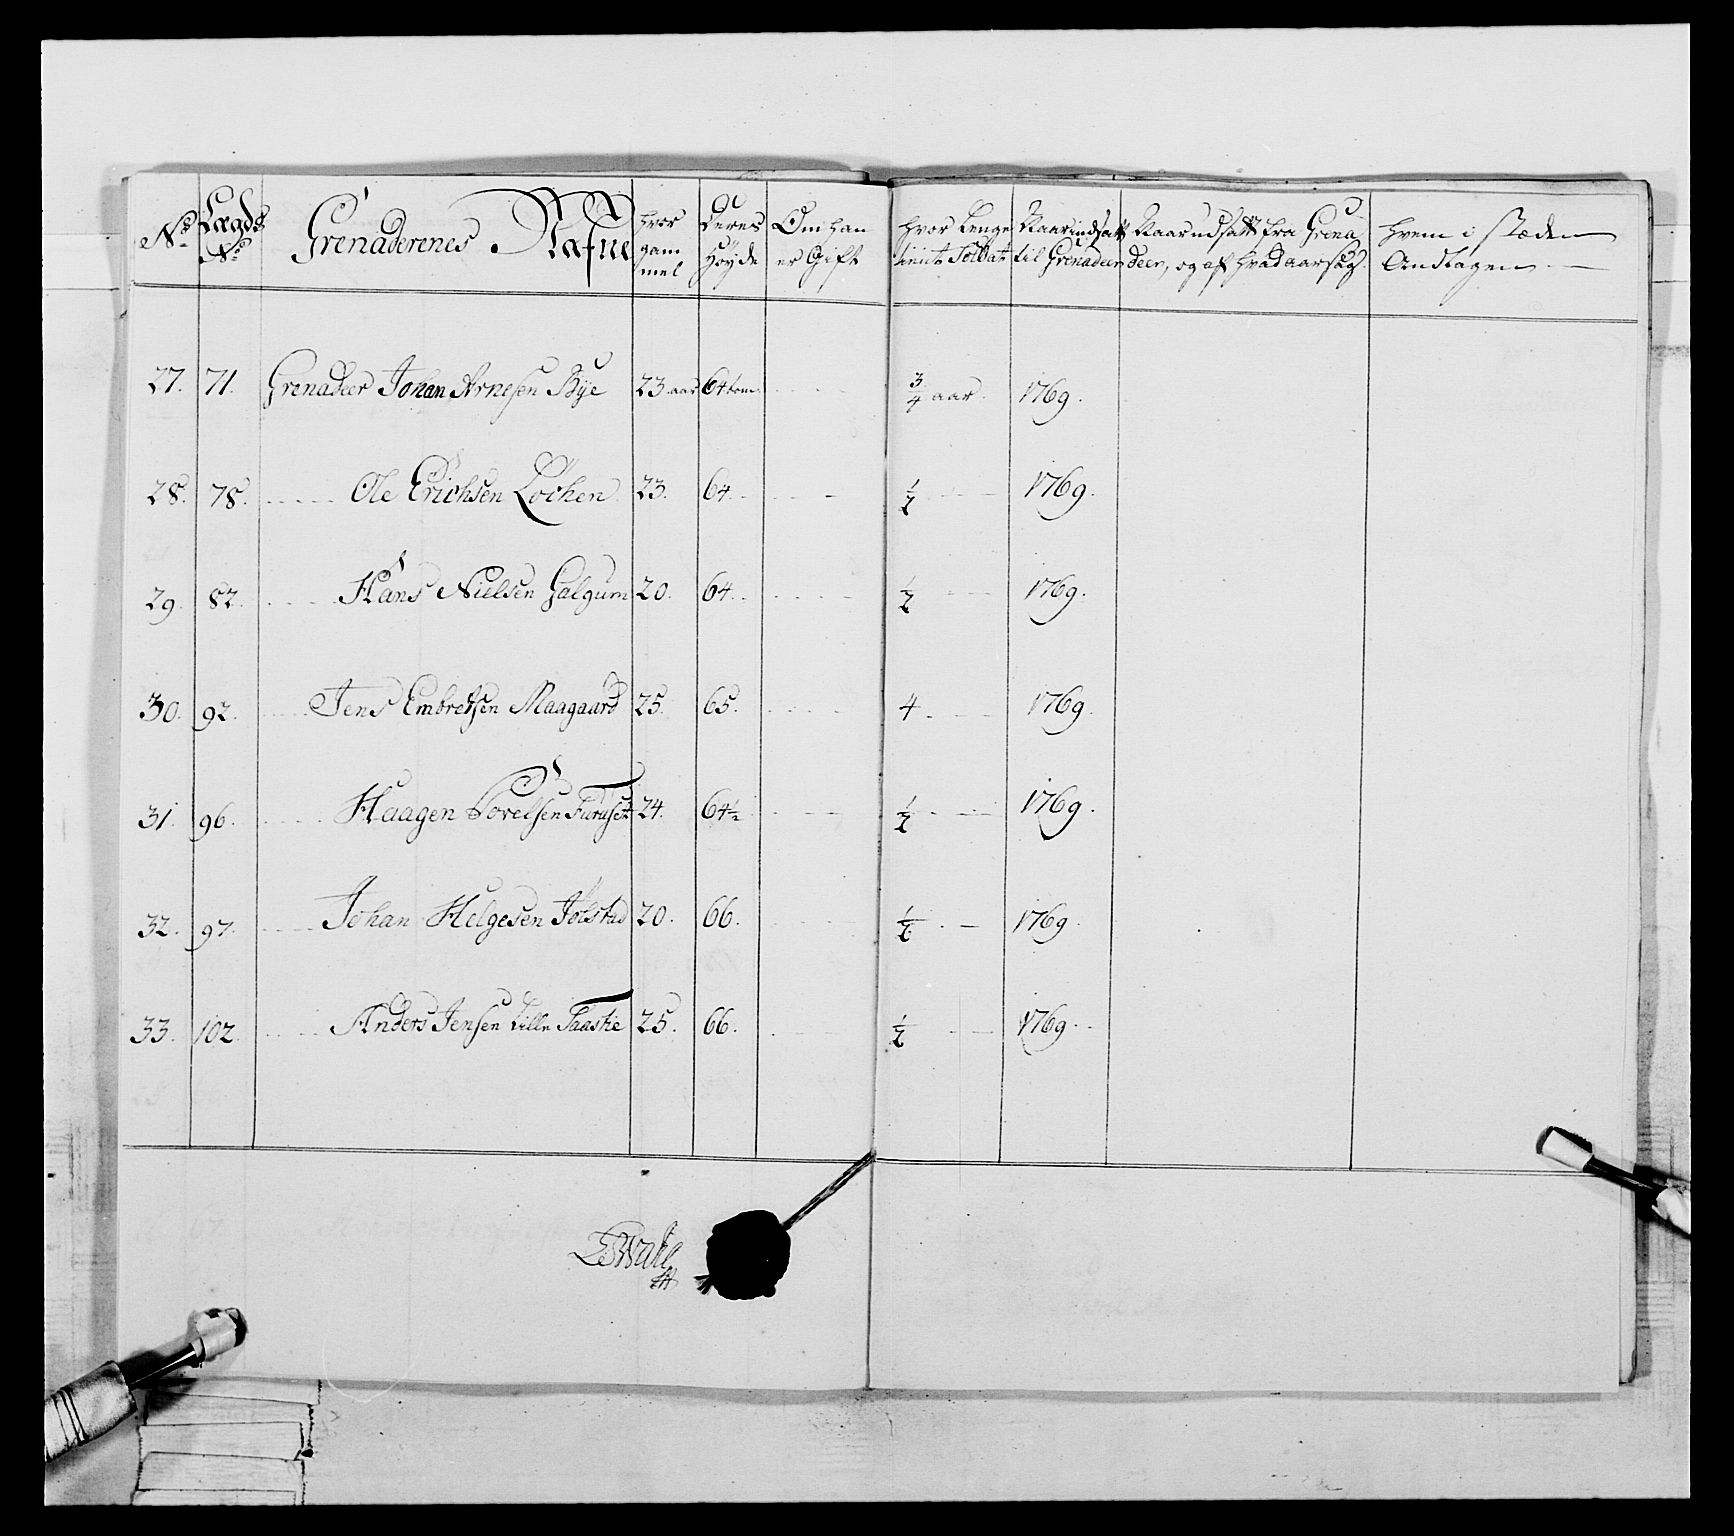 No Lægds No Grenaderenes Nafne hvor gam mel Deres Høyde Om han er Gift hvor Lenge tient Soldat Naar indsatt til Grenadeer Naar udsatt fra Grena deer, og af hvad aarsag. hvem i stæden Andtagen
27. 71. Grenadeer Johan Arnesen Bye 23 aar 64 tom. 3/4 aar. 1769.
28. 78. Ole Erichsen Løchen 23. 64. 1/2 1769.
29. 82. Hans Nielsen Galgum 20. 64. 1/2 1769.
30. 92. Jens Embretsen Maagaard 25. 65. 4. 1769.
31. 96. Haagen Torelsen Furuset 24. 64 1/2 1/2 1769.
32. 97. Johan Helgesen Jølstad 20. 66. 1/2 1769.
33. 102. Anders Jensen Lille Taastie 25. 66. 1/2 1769.